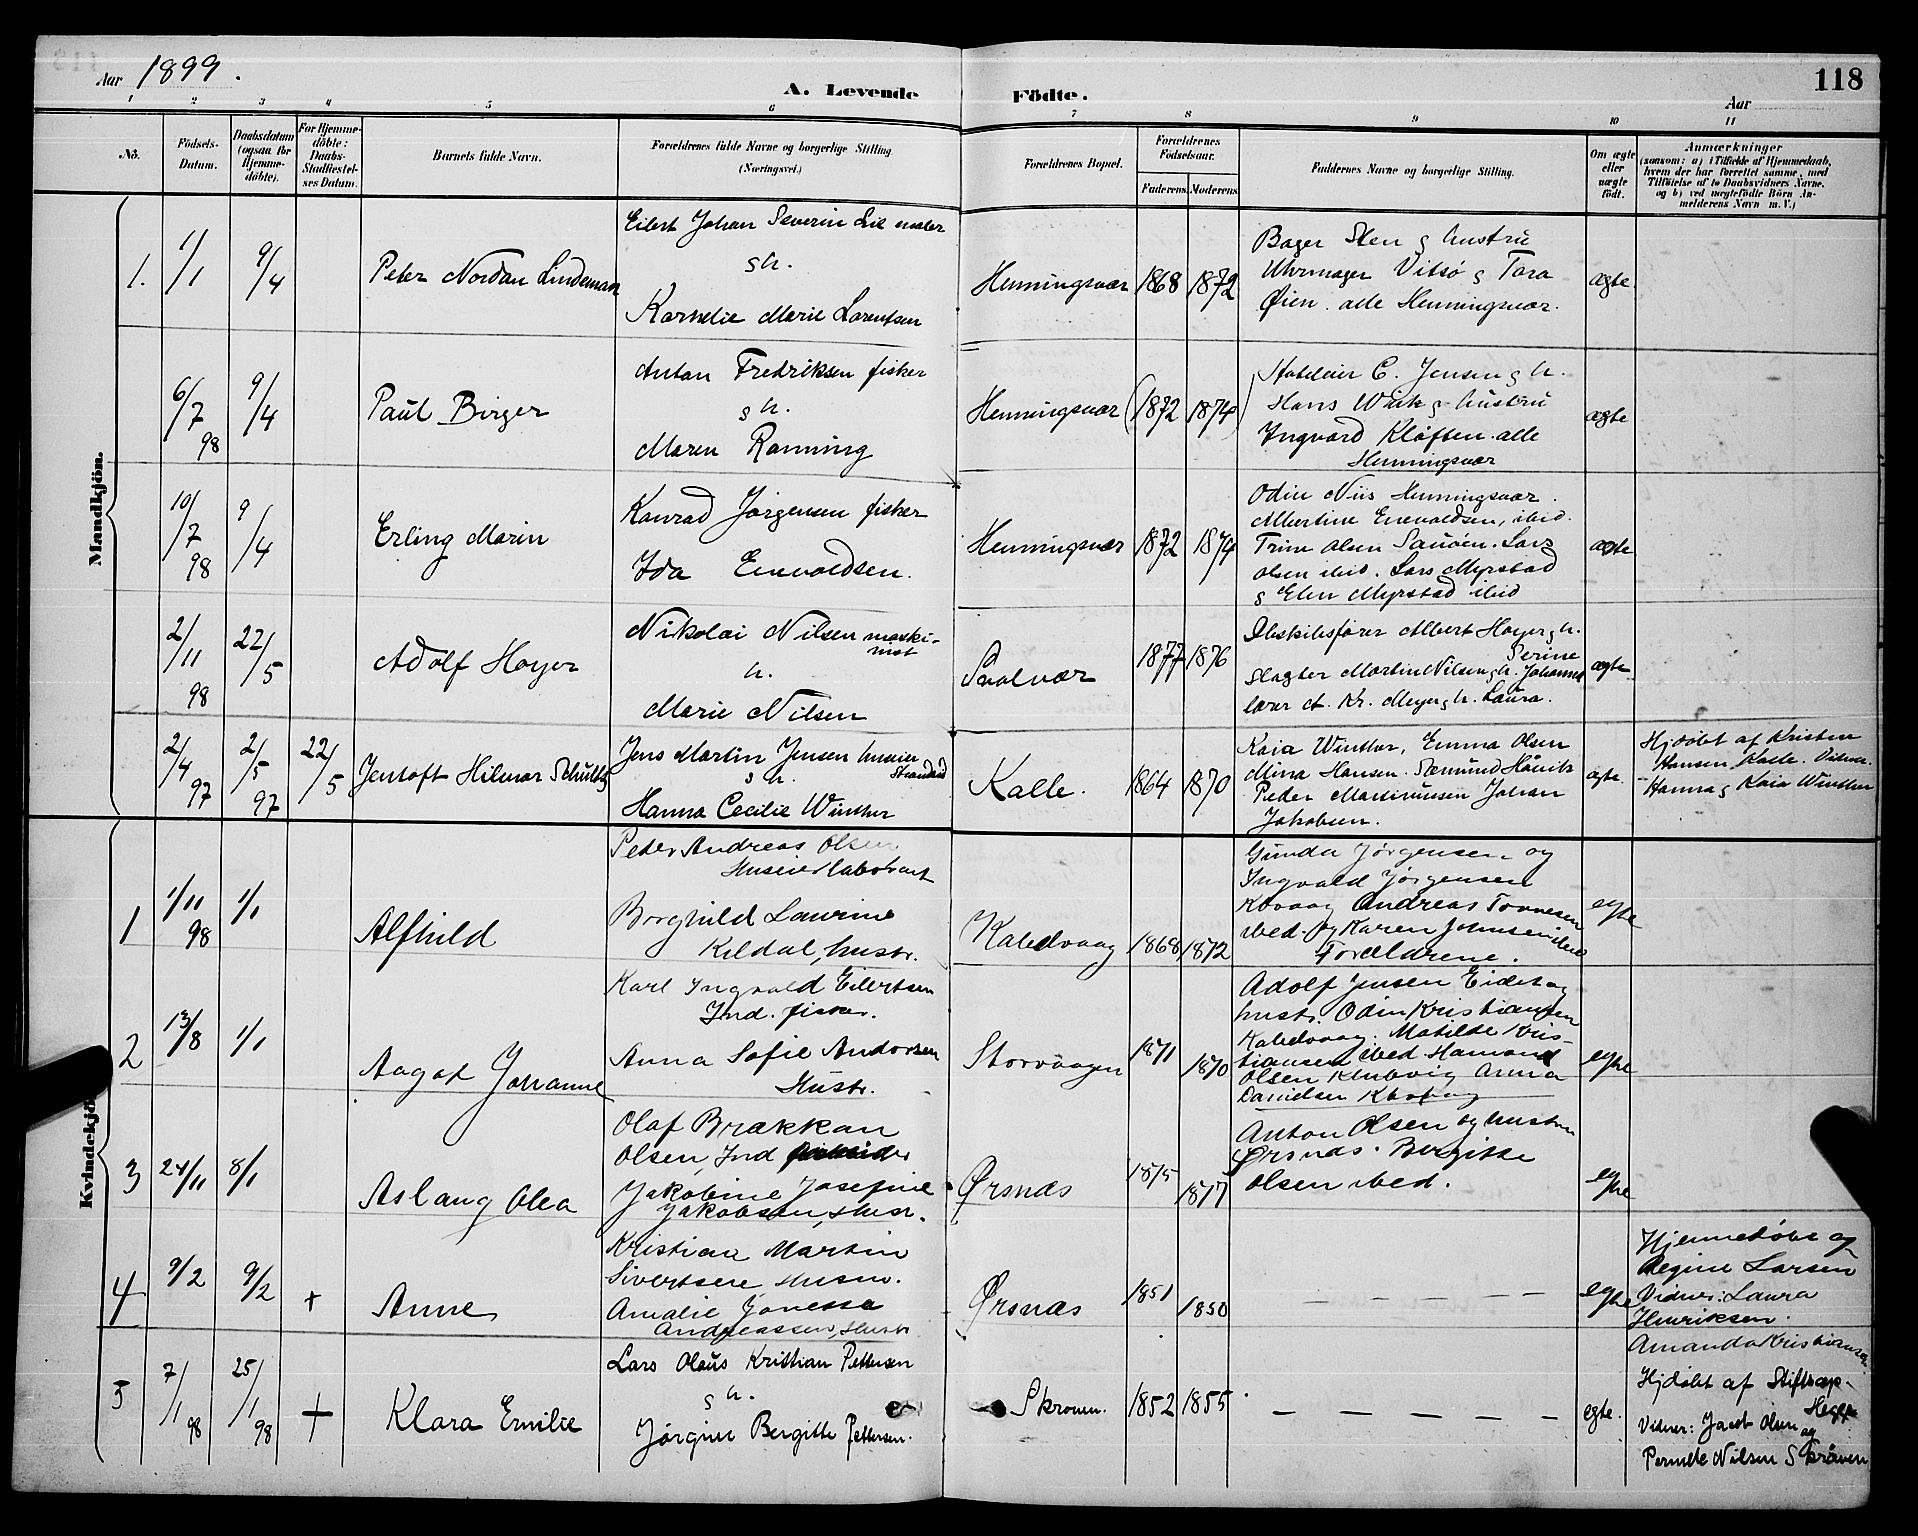 Aar 1899.
A. Levende Födte.
118
Aar
1 2 3 4 5 6 7 8 9 10 11
No.
Födsels-Datum.
Daabsdatum (ogsaa for Hjemme-döbte).
For Hjemme-döbte: Daabs-Stadfæstel-ses Datum.
Barnets fulde Navn.
Forældrenes fulde Navne og borgerlige Stilling. (Næringsvei.)
Forældrenes Bopæl.
Forældrenes Födselsaar.
Faderens. Moderens.
Faddernes Navne og borgerlige Stilling.
Om ægte eller uægte födt.
Anmærkninger
(saasom: a) i Tilfælde af Hjemmedaab,
hvem der har forrettet samme, med
Tilföielse af to Daabsvidners Navne,
og b) ved uægtefödte Börn An-
melderens Navn m. V.)
Mandkjön.
1. 1/1 9/4 Peter Nordan Lindeman
Eilert Johan Severin Lie maler
g h.
Kornelie Marie Lorentsen
Henningsvær 1868 1872
Bager Sten g hustru
Uhrmager Vitsø g Tora
Øien. alle Henningsvær.
ægte
6/7 98 9/4 Paul Birger
Anton Fredriksen fisker
g h.
Maren Rønning
Henningsvær (1872 1874)
C. Jensen g h.
Hans g hustru
Ingvard Kløften. alle
Henningsvær
ægte
10/7 98 9/4 Erling Marin
Konrad Jørgensen fisker
Ida Enevoldsen.
Henningsvær 1872 1874
Odin Niis Henningsvær.
Albertine Enevoldsen, ibid.
Trine Olsen Sauøen. Lars
Olsen ibid. Lars Myrstad
g Elen Myrstad ibid
ægte
2/11 98 22/5 Adolf Hoyer
Nikolai Nilsen maski-
nist
h.
Marie Nilsen
Svolvær 1877 1876
Albert Hoyer g h.
Serine
Slagter Martin Nilsen g h. Johanna
lærer A. Kr. Meyer g h. Laura.
ægte
2/4 97 2/5 97 22/5 Jentoft Hilmar Schultz
Jens Martin Jensen huseier
Strandsid
g h.
Hanna Cecilie Winther
Kalle. 1864 1870
Kaia Winther, Emma Olsen
Mina Hansen. Sæmund
Peder Martinusen Johan
Jakobsen.
ægte.
Hjdøbt af Kristen
Hansen Kalle. Vidner.
Hanna g Kaia Winther
Kvindekjö
1 1/11 98 1/1 Alfhild
Peder Andreas Olsen
Huseier laborant
Borghild Laurine
Kildal, hustr.
Kabelvaag 1868 1872
Gunda Jørgensen og
Ingvald Jørgensen
Kbvaag Andreas Tonnesen
ibed. og Karen Johnsen ibed
Forældrene.
egte
2 13/8 1/1 Aagot Johanne
Karl Ingvald Eilertsen
Ind. fisker.
Anna Sofie Andorsen
Hustr.
Storvaagen 1871 1870
Adolf Jensen Eidet og
hustr. Odin Kristiansen
Kabelvaag. Matilde Kris-
tiansen ibed. Hamond
Olsen Anna
Danielsen Kbvaag
egte
3 24/11 8/1 Aslaug Olea
Olaf Brækkan
Olsen, Ind
Jakobine Josefine
Jakobsen, Hustr.
Ørsnæs 1875 1877
Anton Olsen og hustru
Ørsnæs. Bergitte
Olsen ibed.
egte
4 9/2 9/2 + Anne
Kristian Martin
Sivertsen Husm.
Amalie Jonessa
Andreassen, Hustr
Ørsnæs 1851 1850
— — — — —
egte
Hjemmedøbt af
Regine Larsen
Vidner: Laura
Henriksen.
Amanda Kristiansen
5 7/1 98 25/1 98 + Klara Emilie
Lars Olaus Kristian Pettersen
g h.
Jørgine Bergitte Pettersen.
Skroven. 1852 1855
— — — — —
egte.
Hjdøbt af Stiftscap.
Hegge
Vidner: Olsen og
Pernille Nilsen Skroven